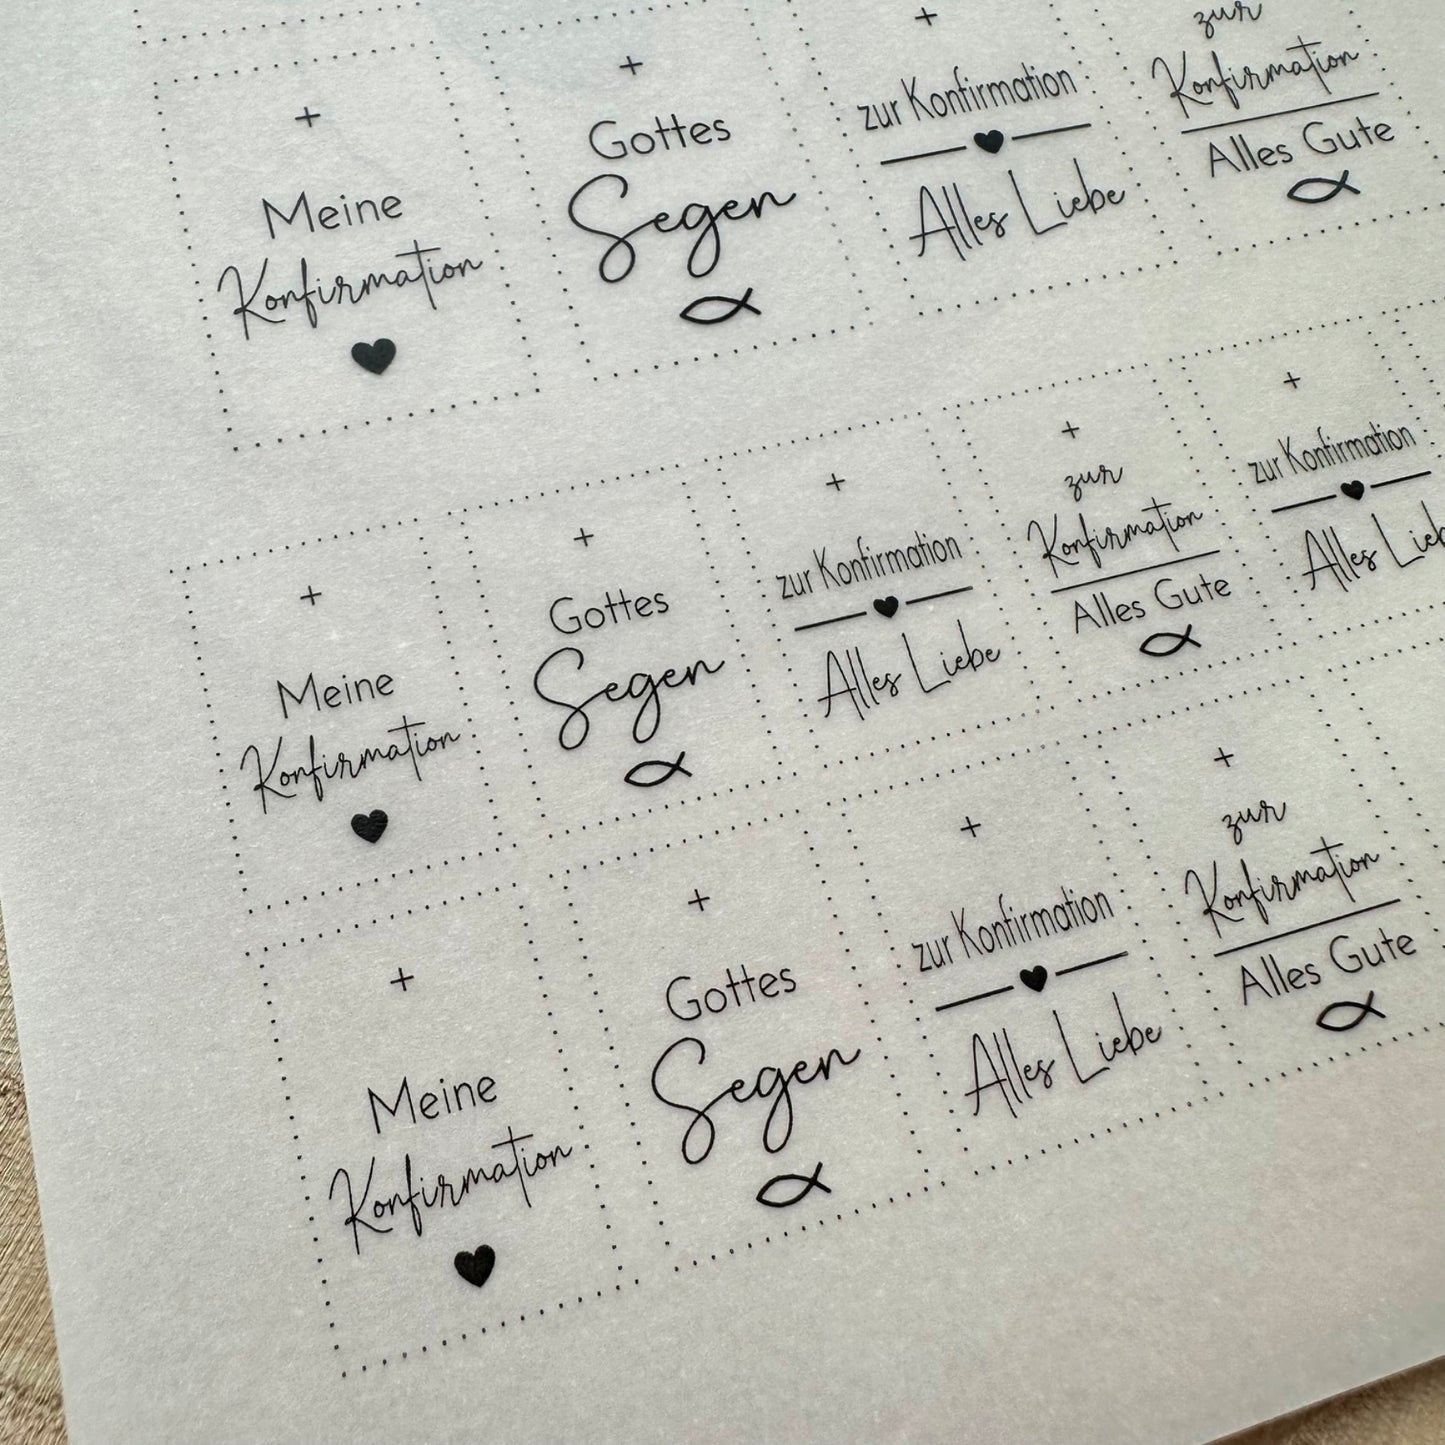 Meine
Konfirmation
Gottes
Segen
zur Konfirmation
Alles Liebe
zur
Konfirmation
Alles Gute
Meine
Konfirmation
Gottes
Segen
zur Konfirmation
Alles Liebe
zur
Konfirmation
Alles Gute
zur Konfirmation
Alles
Meine
Konfirmation
Gottes
Segen
zur Konfirmation
Alles Liebe
zur
Konfirmation
Alles Gute